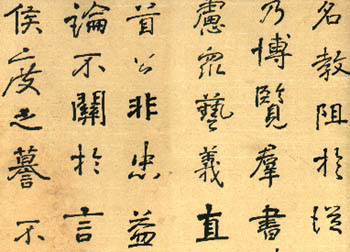 名教阻於
乃博覽羣書
慮眾藝義直
首公非忠益
論不關於言
侯度之謩不